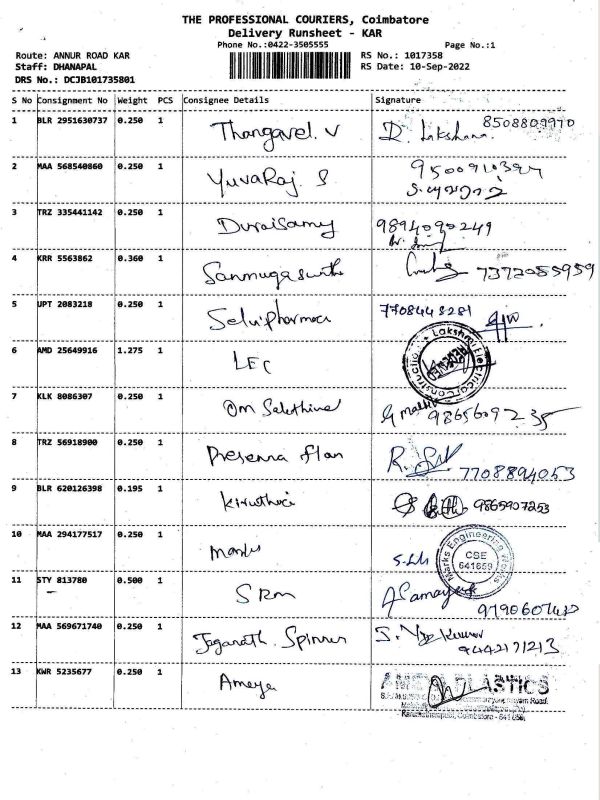 THE PROFESSIONAL COURIERS, Coimbatore
Delivery Runsheet - KAR
Phone No.:0422-3505555 Page No.:1
Route: ANNUR ROAD KAR RS No.: 1017358
Staff: DHANAPAL RS Date: 10-Sep-2022
DRS No.: DCJB101735801
S No Consignment No Weight PCS Consignee Details Signature
1 BLR 2951630737 0.250 1 Thangavel. V 8508809970
2 MAA 568540860 0.250 1 YuvaRaj. S
3 TRZ 335441142 0.250 1 Duraisamy 9894090249
4 KRR 5563862 0.360 1 7372085959
5 UPT 2083218 0.250 1 Selvipharmaci 7708448281
6 AMD 25649916 1.275 1 LEC
Lakshmi Electrical Constructio
7 KLK 8086307 0.250 1 Om
8 TRZ 56918900 0.250 1 7708894053
9 BLR 620126398 0.195 1 9865907253
10 MAA 294177517 0.250 1
Marks Engineering Works
CSE
641659
11 STY 813780 0.500 1 SRM
12 MAA 569671740 0.250 1 Jaganath Spinner 9442171213
13 KWR 5235677 0.250 1 Ameya
PLASTICS
Coimbatore - 641 659